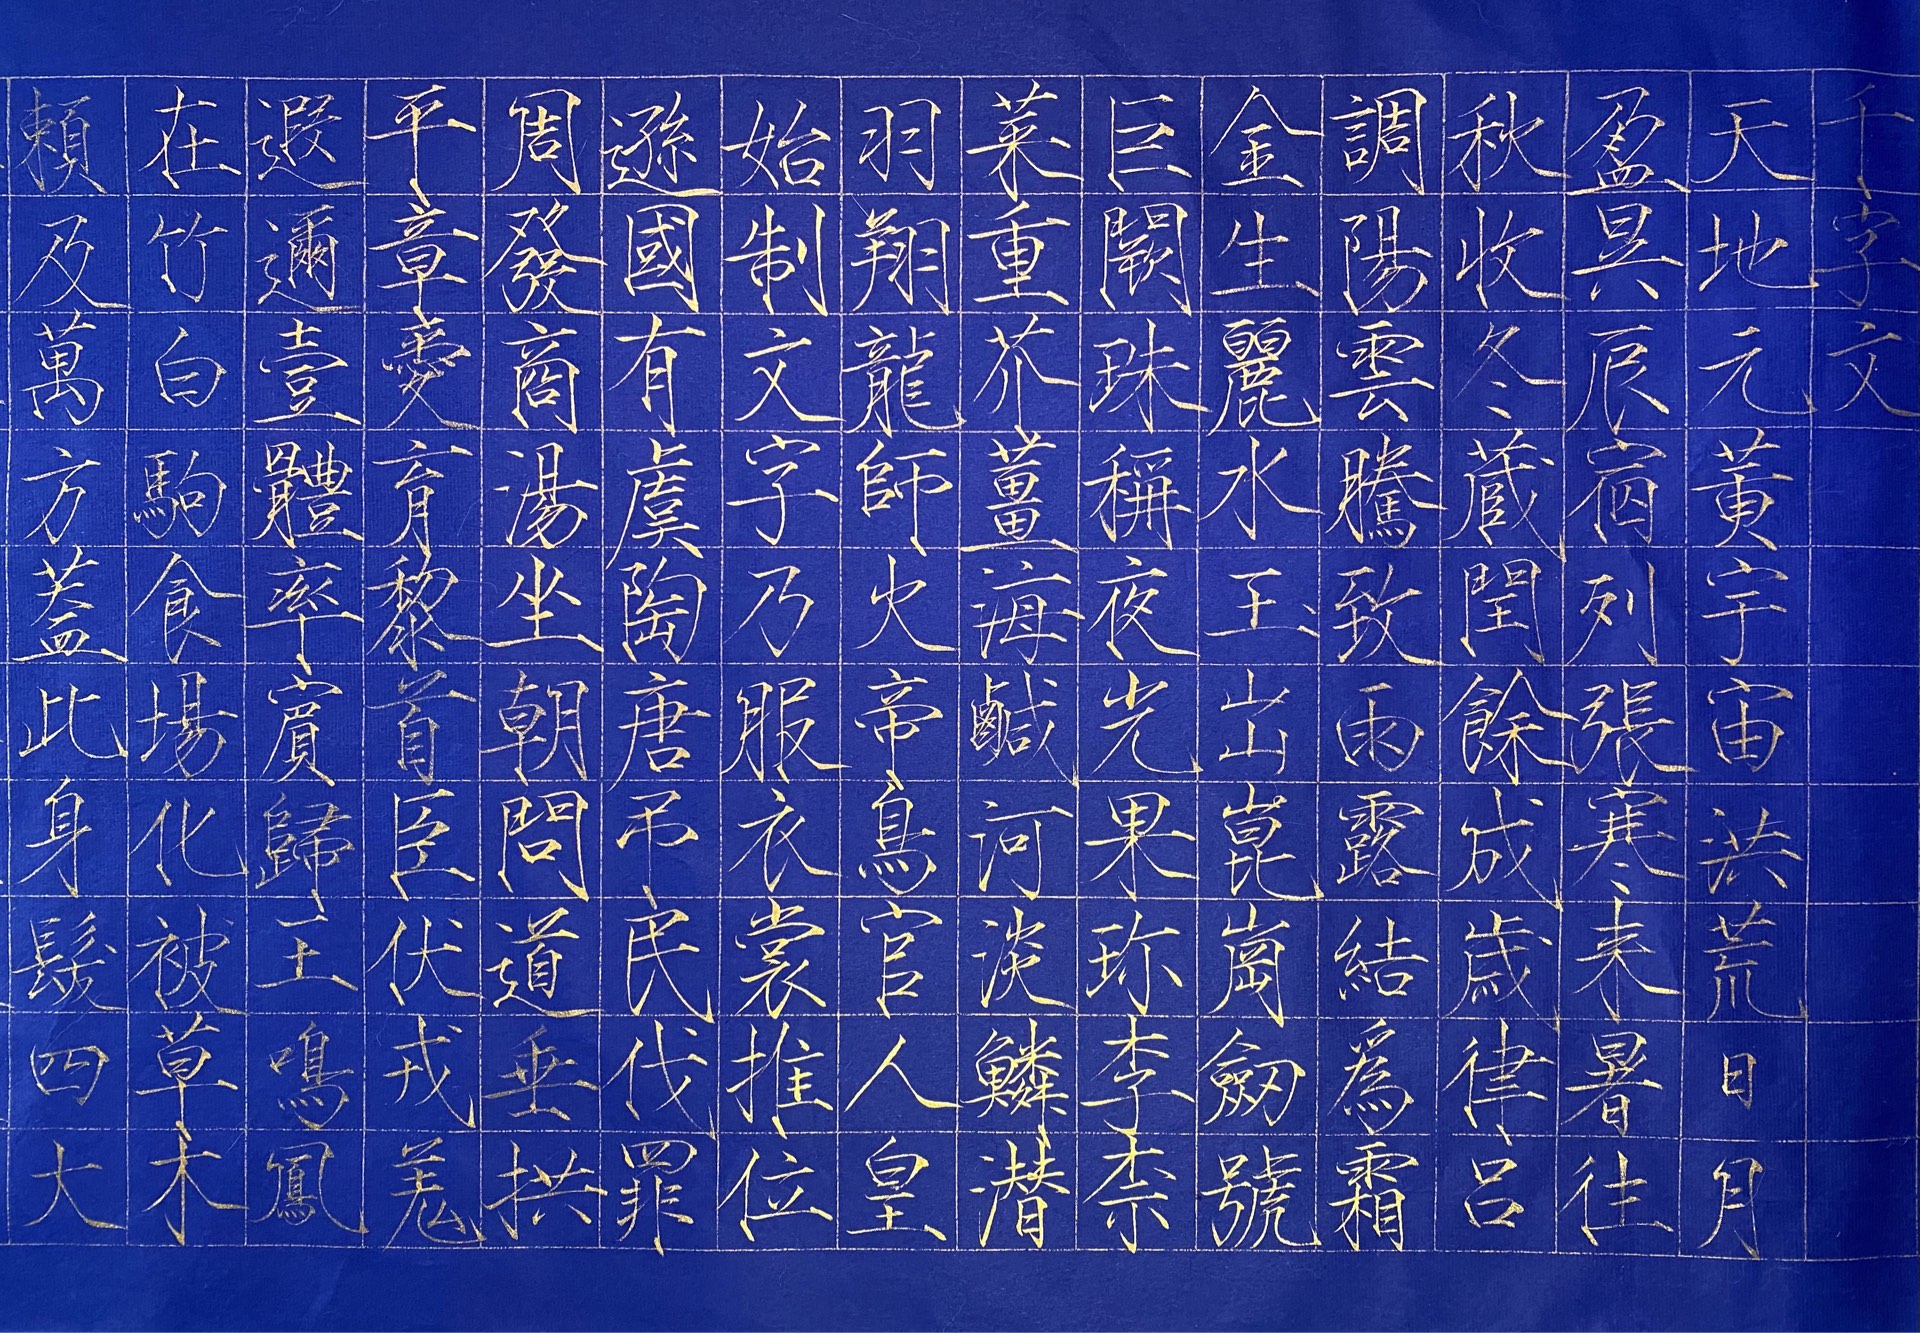 千字文
天地元黄宇宙洪荒日月
盈昃辰宿列張寒来暑往
秋收冬蔵閏餘成歳律呂
調陽雲騰致雨露結爲霜
金生麗水玉出崑崗劒號
巨闕珠稱夜光果珎李柰
菜重芥薑海鹹河淡鱗潜
羽翔龍師火帝鳥官人皇
始制文字乃服衣裳推位
遜國有虞陶唐吊民伐罪
周發商湯坐朝問道垂拱
平章愛育黎首臣伏戎羌
遐邇壹體率賓歸王鳴鳳
在竹白駒食場化被草木
頼及萬方蓋此身髮四大